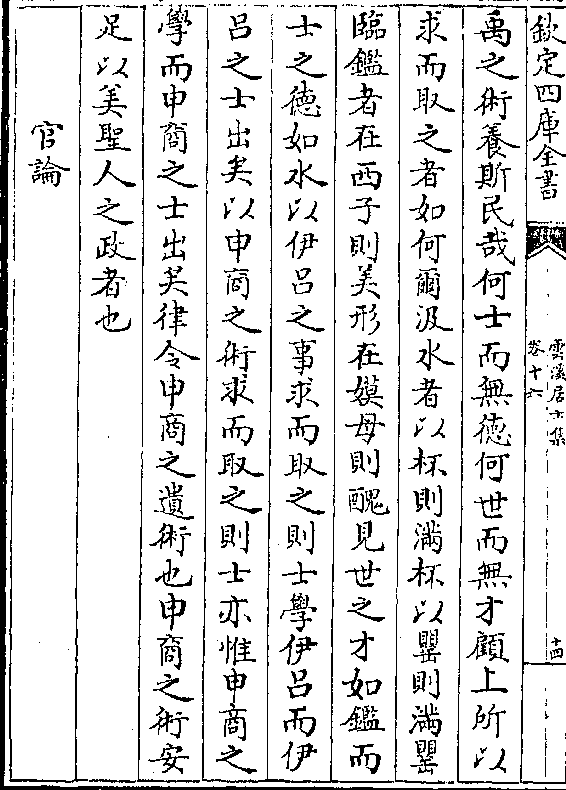 欽定四庫全書
雲溪居士集
卷十六
十四
禹之術養斯民哉何士而無徳何世而無才顧上所以
求而取之者如何爾汲水者以杯則滿杯以罌則滿罌
臨鑑者在西子則美形在嫫母則醜見世之才如鑑而
士之徳如水以伊吕之事求而取之則士學伊吕而伊
吕之士出矣以申商之術求而取之則士亦惟申商之
學而申商之士出矣律令申商之遺術也申商之術安
足以美聖人之政者也
官論